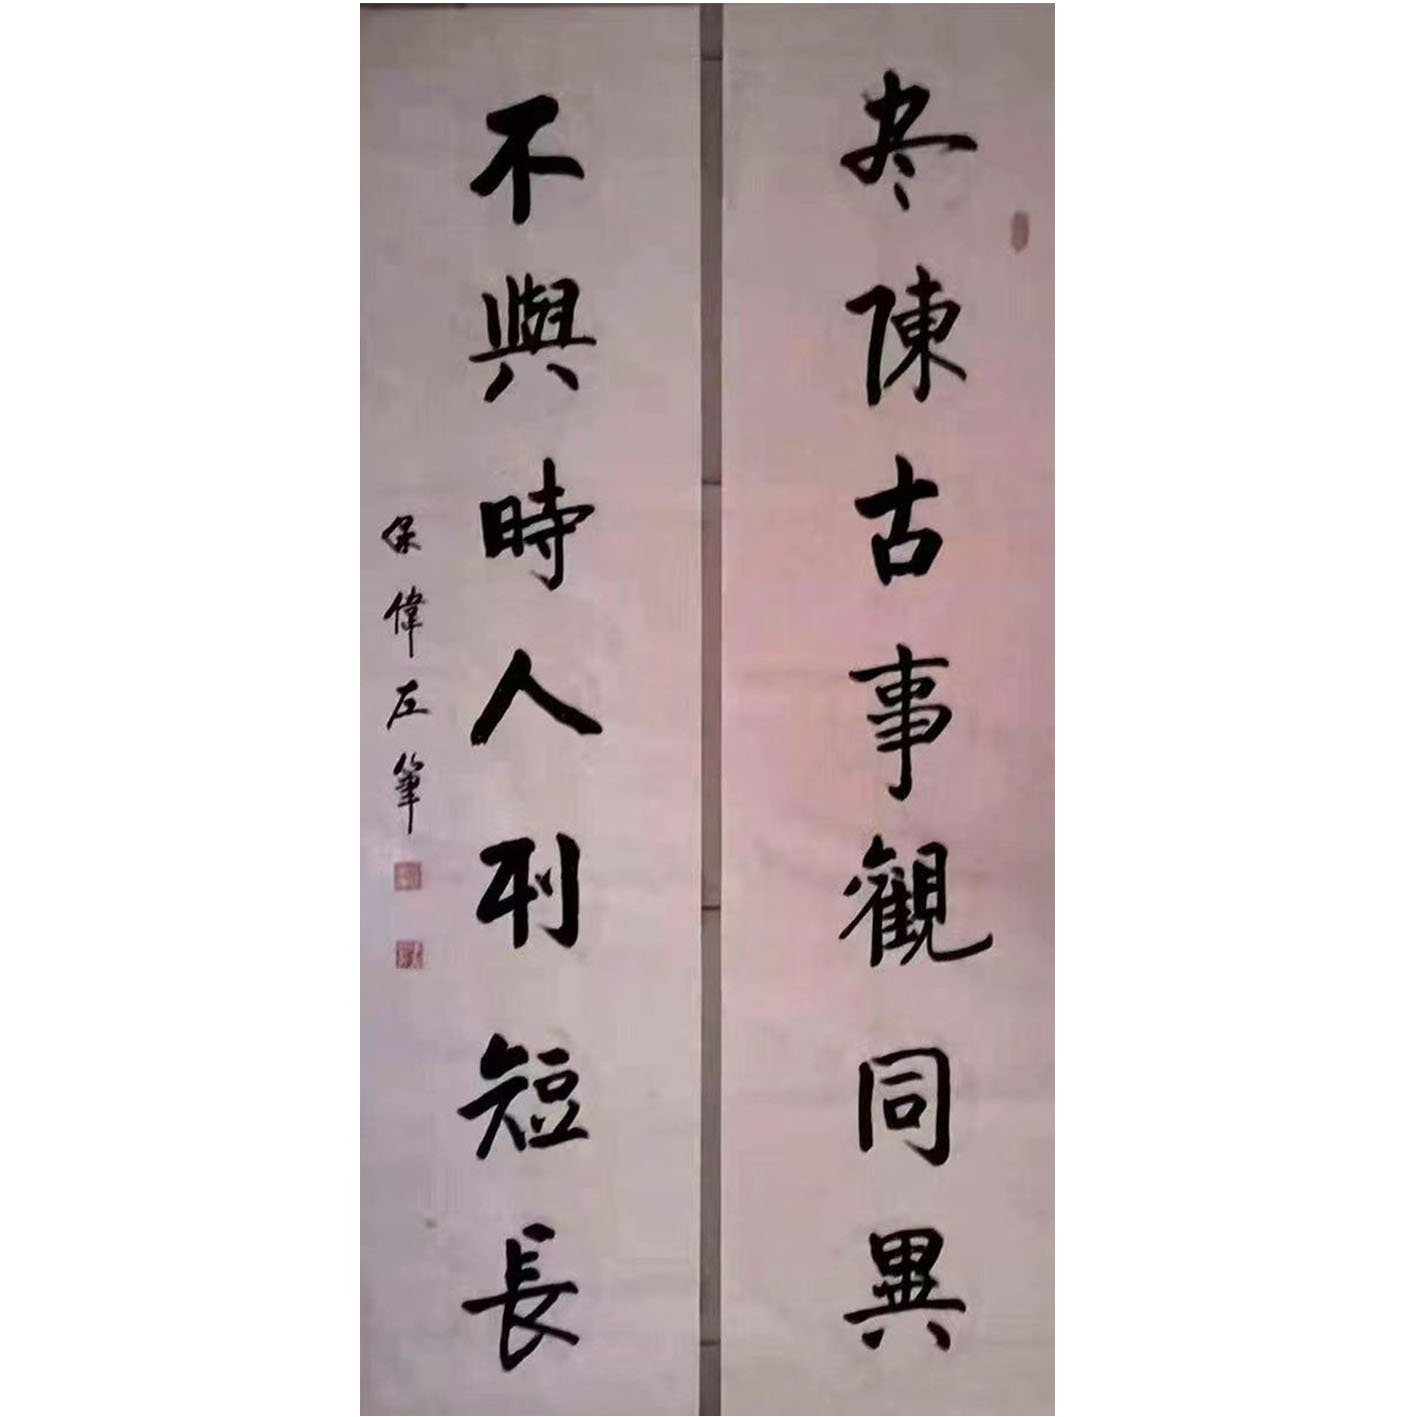 尽陳古事觀同異
不與時人短長
保偉左筆